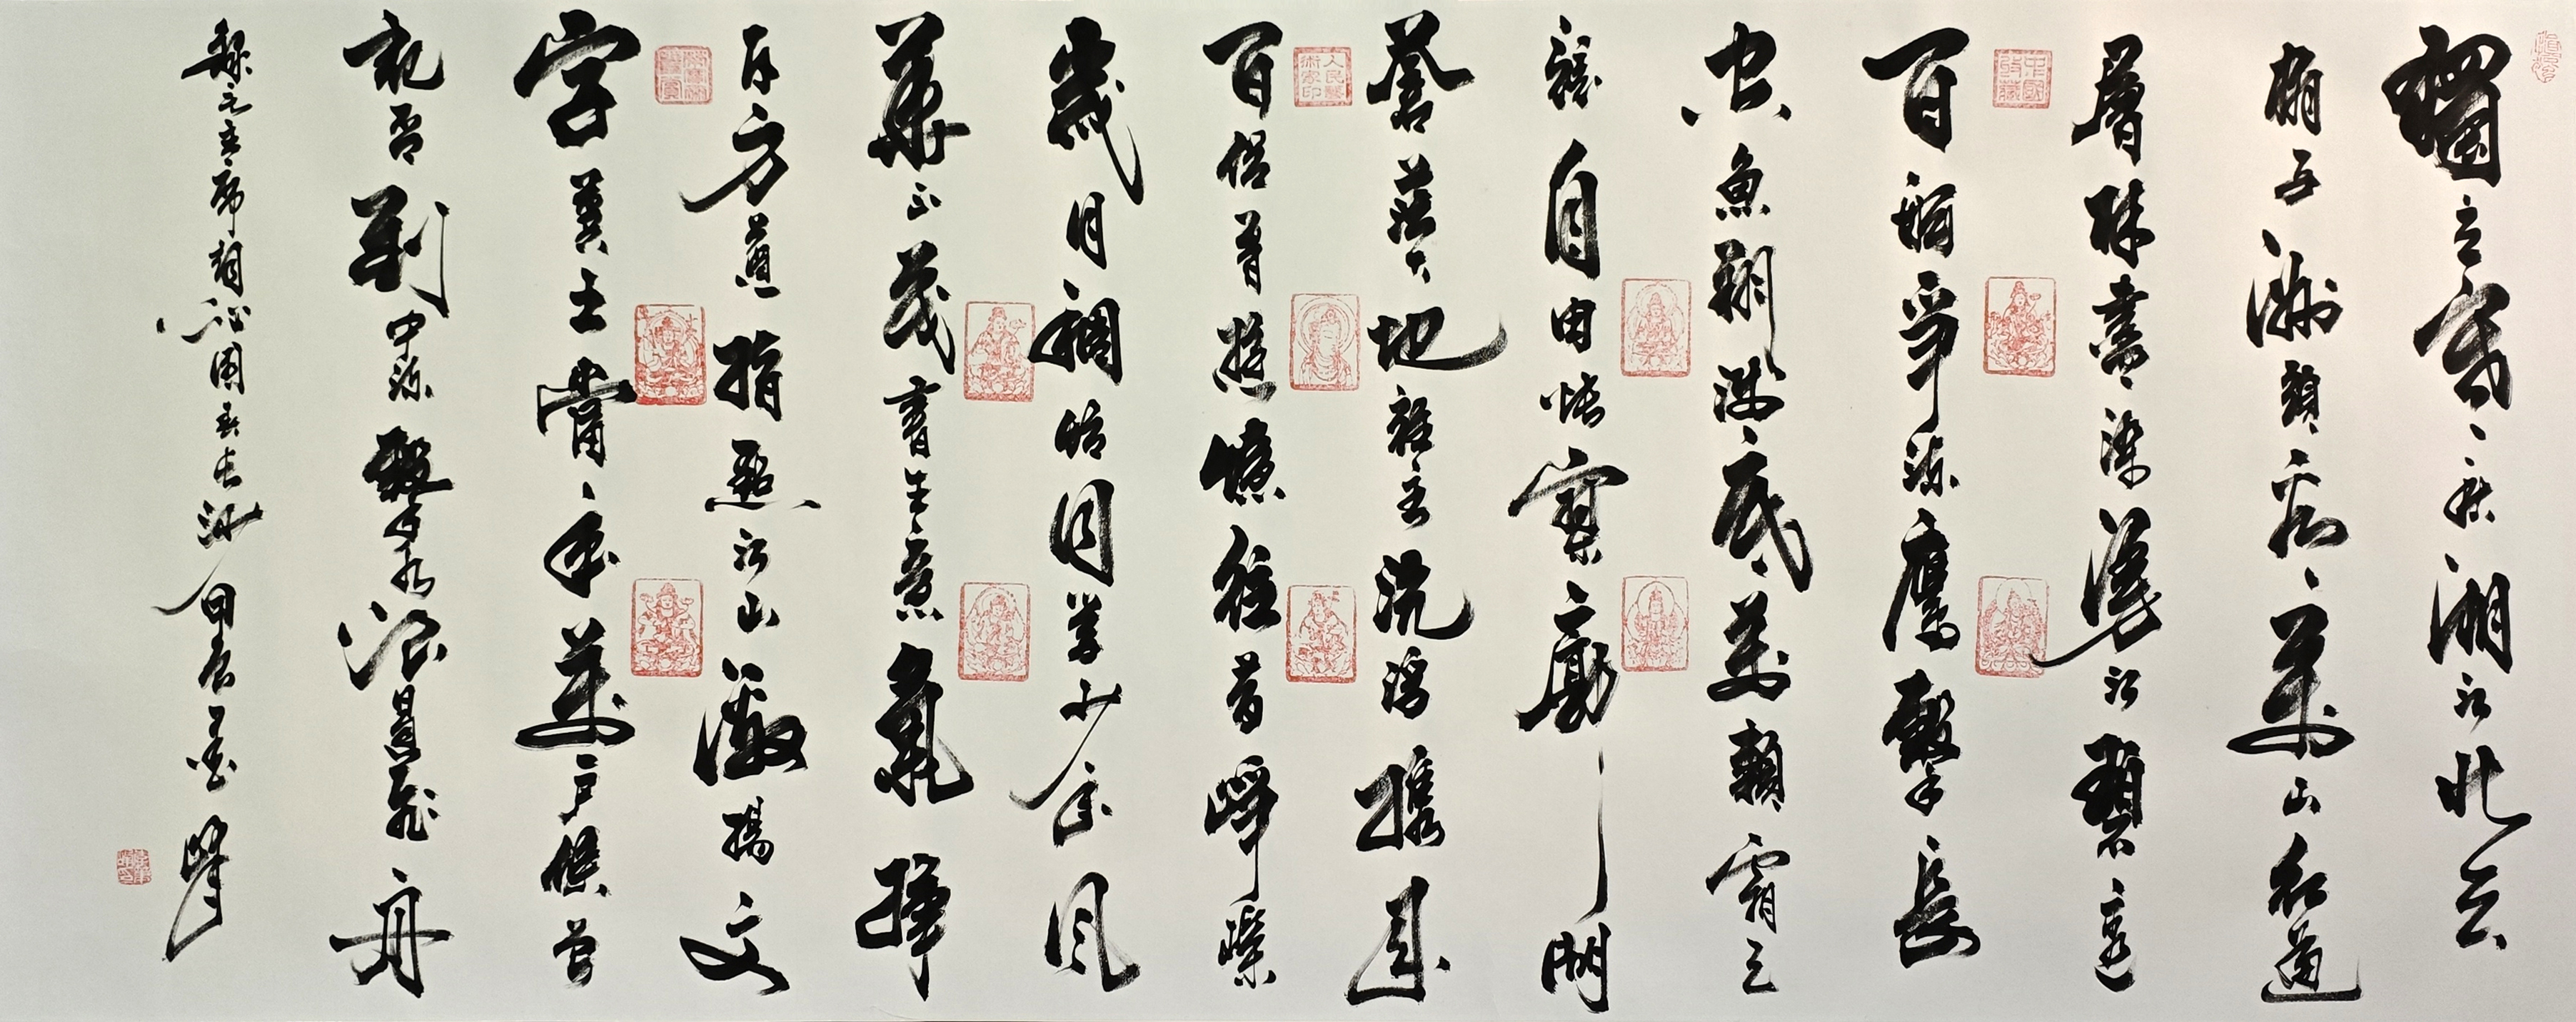 獨立寒秋湘江北去
橘子洲頭看萬山紅遍
層林盡染漫江碧透
百舸爭流鷹擊長
空魚翔淺底萬類霜天
競自由悵寥廓問
蒼茫大地誰主沉浮攜來
百侶曾遊憶往昔崢嶸
歲月稠恰同學少年風
華正茂書生意氣揮
斥方遒指點江山激揚文
字糞土當年萬戶侯曾
記否到中流擊水浪遏飛舟
錄毛主席詞沁園春長沙甲辰
中國收藏
人民藝術家印